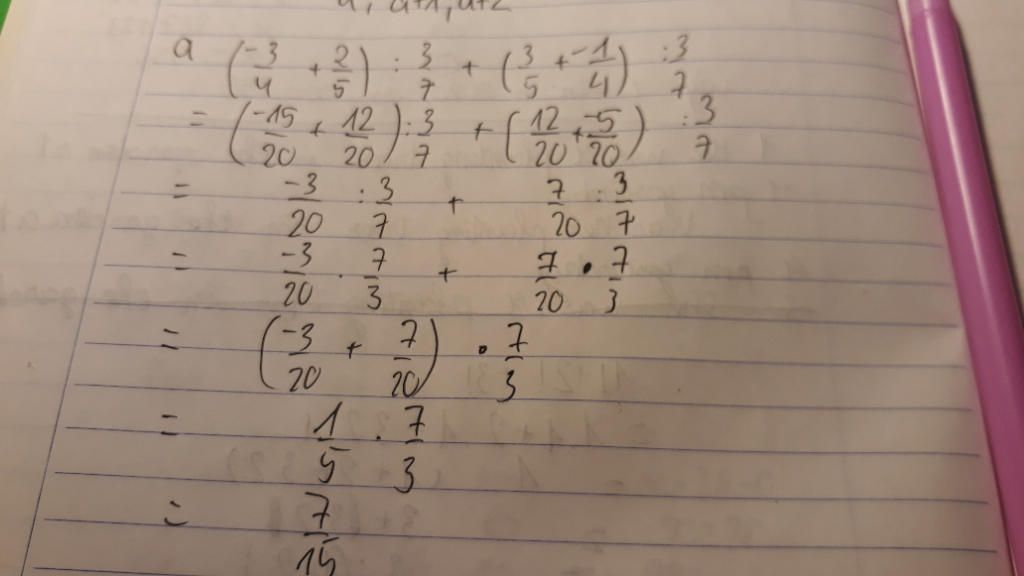 a (-3/4 + 2/5) : 3/7 + (3/5 + -1/4) : 3/7
= (-15/20 + 12/20) : 3/7 + (12/20 + -5/20) : 3/7
= -3/20 : 3/7 + 7/20 : 3/7
= -3/20 · 7/3 + 7/20 · 7/3
= (-3/20 + 7/20) · 7/3
= 1/5 · 7/3
= 7/15